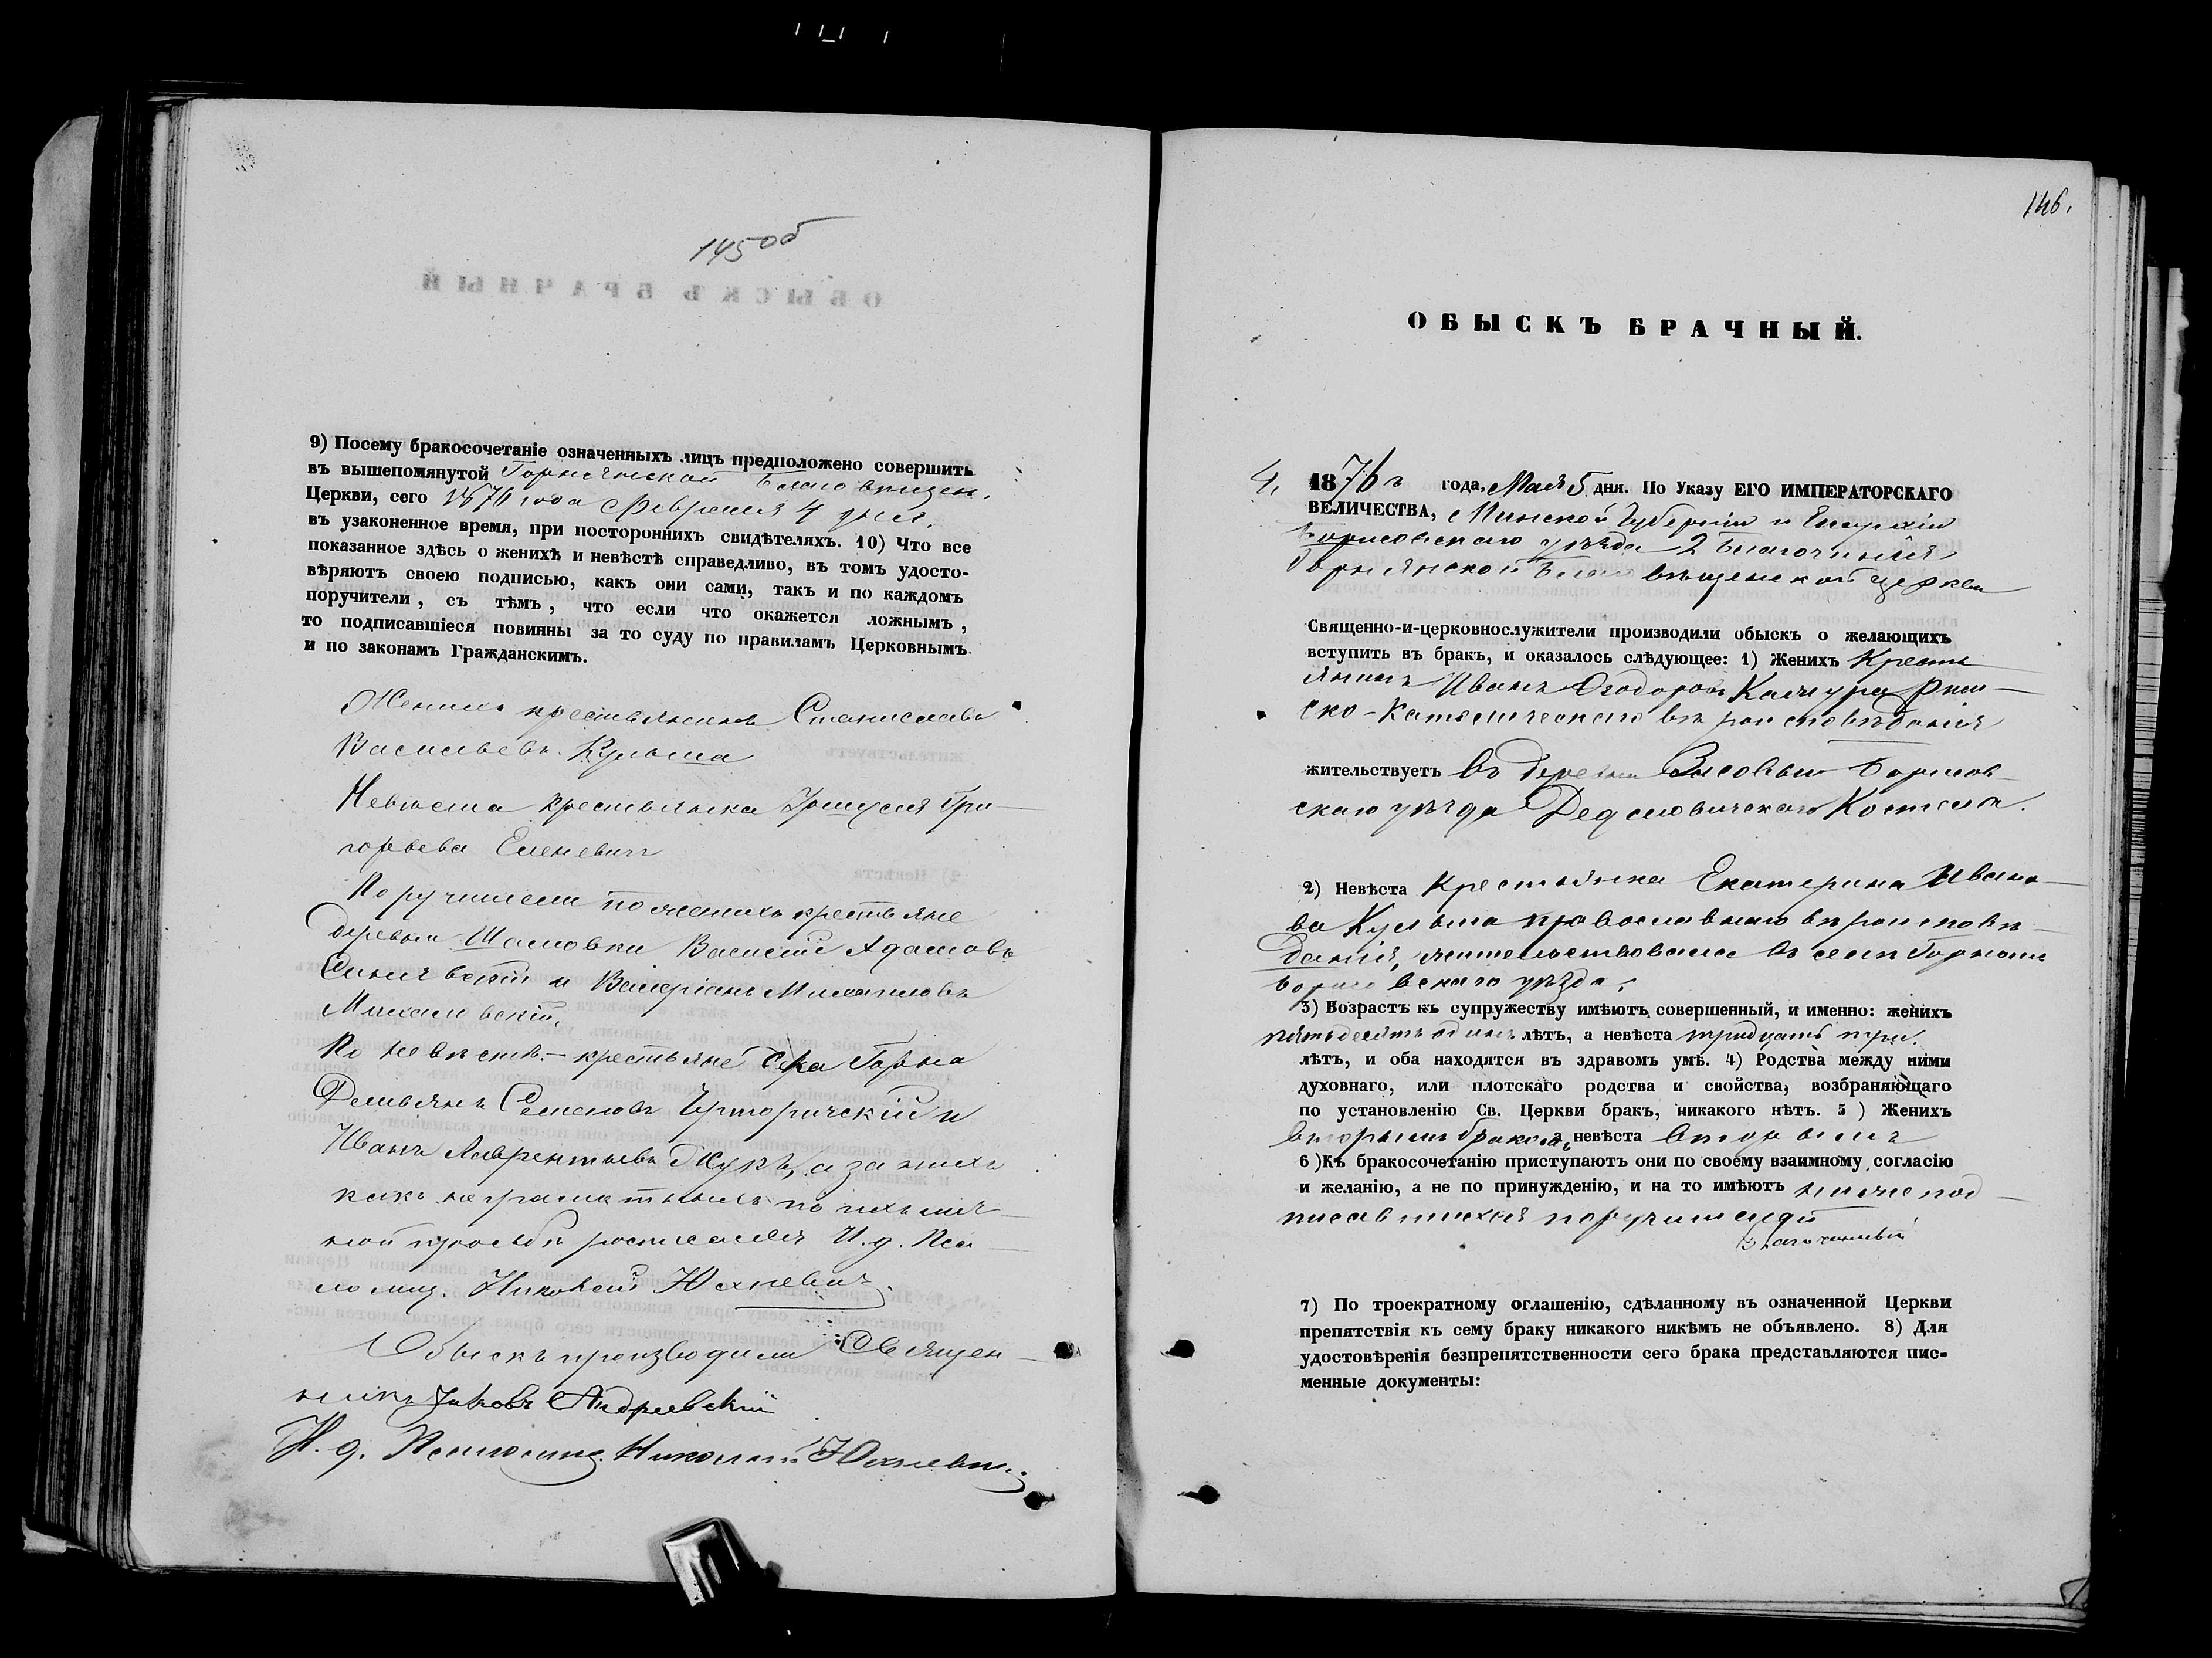 145 об
9) Посему бракосочетаніе означенныхъ лицъ предположено совершить
въ вышепомянутой Благовѣщен.
Церкви, сего 1876 года Февраля 4 дня.
въ узаконенное время, при постороннихъ свидѣтеляхъ. 10) Что все
показанное здѣсь о женихѣ и невѣстѣ справедливо, въ томъ удосто-
вѣряютъ своею подписью, какъ они сами, такъ и по каждомъ
поручители, съ тѣмъ, что если что окажется ложнымъ,
то подписавшіеся повинны за то суду по правиламъ Церковнымъ
и по законамъ Гражданскимъ.
Женихъ крестьянинъ Станиславъ
Васильевъ Кульша
Невѣста крестьянка Гри-
горьева
Поручители по женихѣ крестьяне
деревни Василій Адамовъ
и Валеріанъ
Михаловскій,
По невѣстѣ – крестьяне села Горна
Демьянъ Семеновъ и
Иванъ Лаврентьевъ Жукъ, а за нихъ
какъ неграмотныхъ по ихъ лич-
ной просьбѣ росписался И. д. Пса-
ломщ. Николай Юхневичъ.
Обыскъ производили Священ-
никъ Іаковъ Андреевскій
И. д. Псаломщ. Николай Юхневичъ
146.
ОБЫСКЪ БРАЧНЫЙ.
4, 1876 г года, Мая 5 дня. По Указу ЕГО ИМПЕРАТОРСКАГО
ВЕЛИЧЕСТВА, Минской Губерніи и Епархіи
Борисовскаго уѣзда 2 Благочинія
Горнянской Благовѣщенской церкви
Священно-и-церковнослужители производили обыскъ о желающихъ
вступить въ бракъ, и оказалось слѣдующее: 1) Женихъ Кресть
янинъ Иванъ Ѳеодоровъ Качура Рим-
ско-Католическаго вѣроисповѣданія
жительствуетъ въ деревни Борисов-
скаго уѣзда Костела.
2) Невѣста Крестьянка Екатерина Ивано-
ва Кульша православнаго вѣроисповѣ-
данія, жительствовала въ селѣ Горнахъ
Борисовскаго уѣзда.
3) Возрастъ къ супружеству имѣютъ совершенный, и именно: женихъ
пятьдесятъ одинъ лѣтъ, а невѣста тридцать три.
лѣтъ, и оба находятся въ здравомъ умѣ. 4) Родства между ними
духовнаго, или плотскаго родства и свойства, возбраняющаго
по установленію Св. Церкви бракъ, никакого нѣтъ. 5 ) Женихъ
вторымъ бракомъ, а невѣста вторымъ
6 )Къ бракосочетанію приступаютъ они по своему взаимному согласію
и желанію, а не по принужденію, и на то имѣютъ нижепод-
писавшихся поручителей
7) По троекратному оглашенію, сдѣланному въ означенной Церкви
препятствія къ сему браку никакого никѣмъ не объявлено. 8) Для
удостовѣренія безпрепятственности сего брака представляются пис-
менные документы: